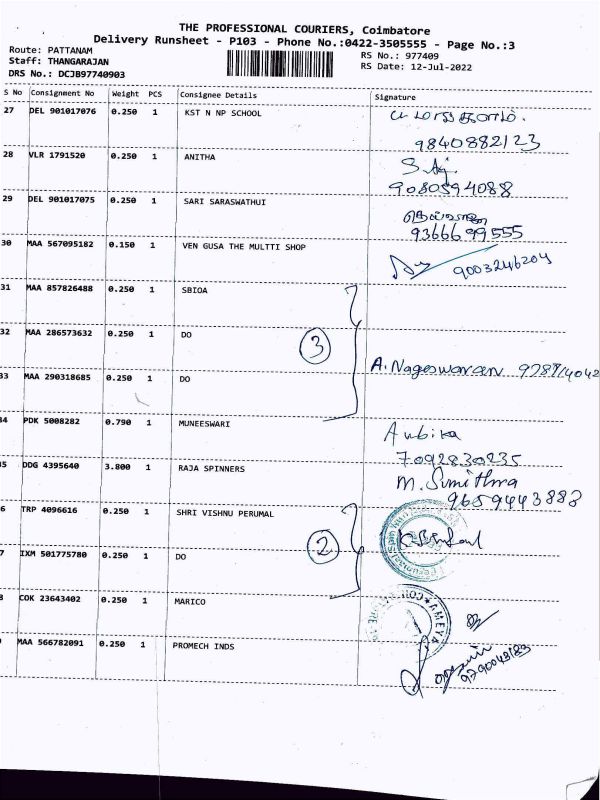 THE PROFESSIONAL COURIERS, Coimbatore
Delivery Runsheet - P103 - Phone No.:0422-3505555 - Page No.:3
Route: PATTANAM
RS No.: 977409
Staff: THANGARAJAN
RS Date: 12-Jul-2022
DRS No.: DCJB97740903
S No Consignment No Weight PCS Consignee Details Signature
27 DEL 901017076 0.250 1 KST N NP SCHOOL
9840882123
28 VLR 1791520 0.250 1 ANITHA
9080594088
29 DEL 901017075 0.250 1 SARI SARASWATHUI
9366699555
30 MAA 567095182 0.150 1 VEN GUSA THE MULTTI SHOP
9003246204
31 MAA 857826488 0.250 1 SBIOA
32 MAA 286573632 0.250 1 DO
3
A. Nageswaran
33 MAA 290318685 0.250 1 DO
34 PDK 5008282 0.790 1 MUNEESWARI
Ambika
7092830235
35 DDG 4395640 3.800 1 RAJA SPINNERS
M. Sumithra
9659443883
6 TRP 4096616 0.250 1 SHRI VISHNU PERUMAL
2
7 IXM 501775780 0.250 1 DO
8 COK 23643402 0.250 1 MARICO
MAA 566782091 0.250 1 PROMECH INDS
9790043183